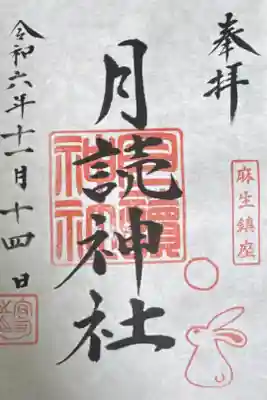 奉拝
麻生鎮座
月読神社
令和六年十一月十四日